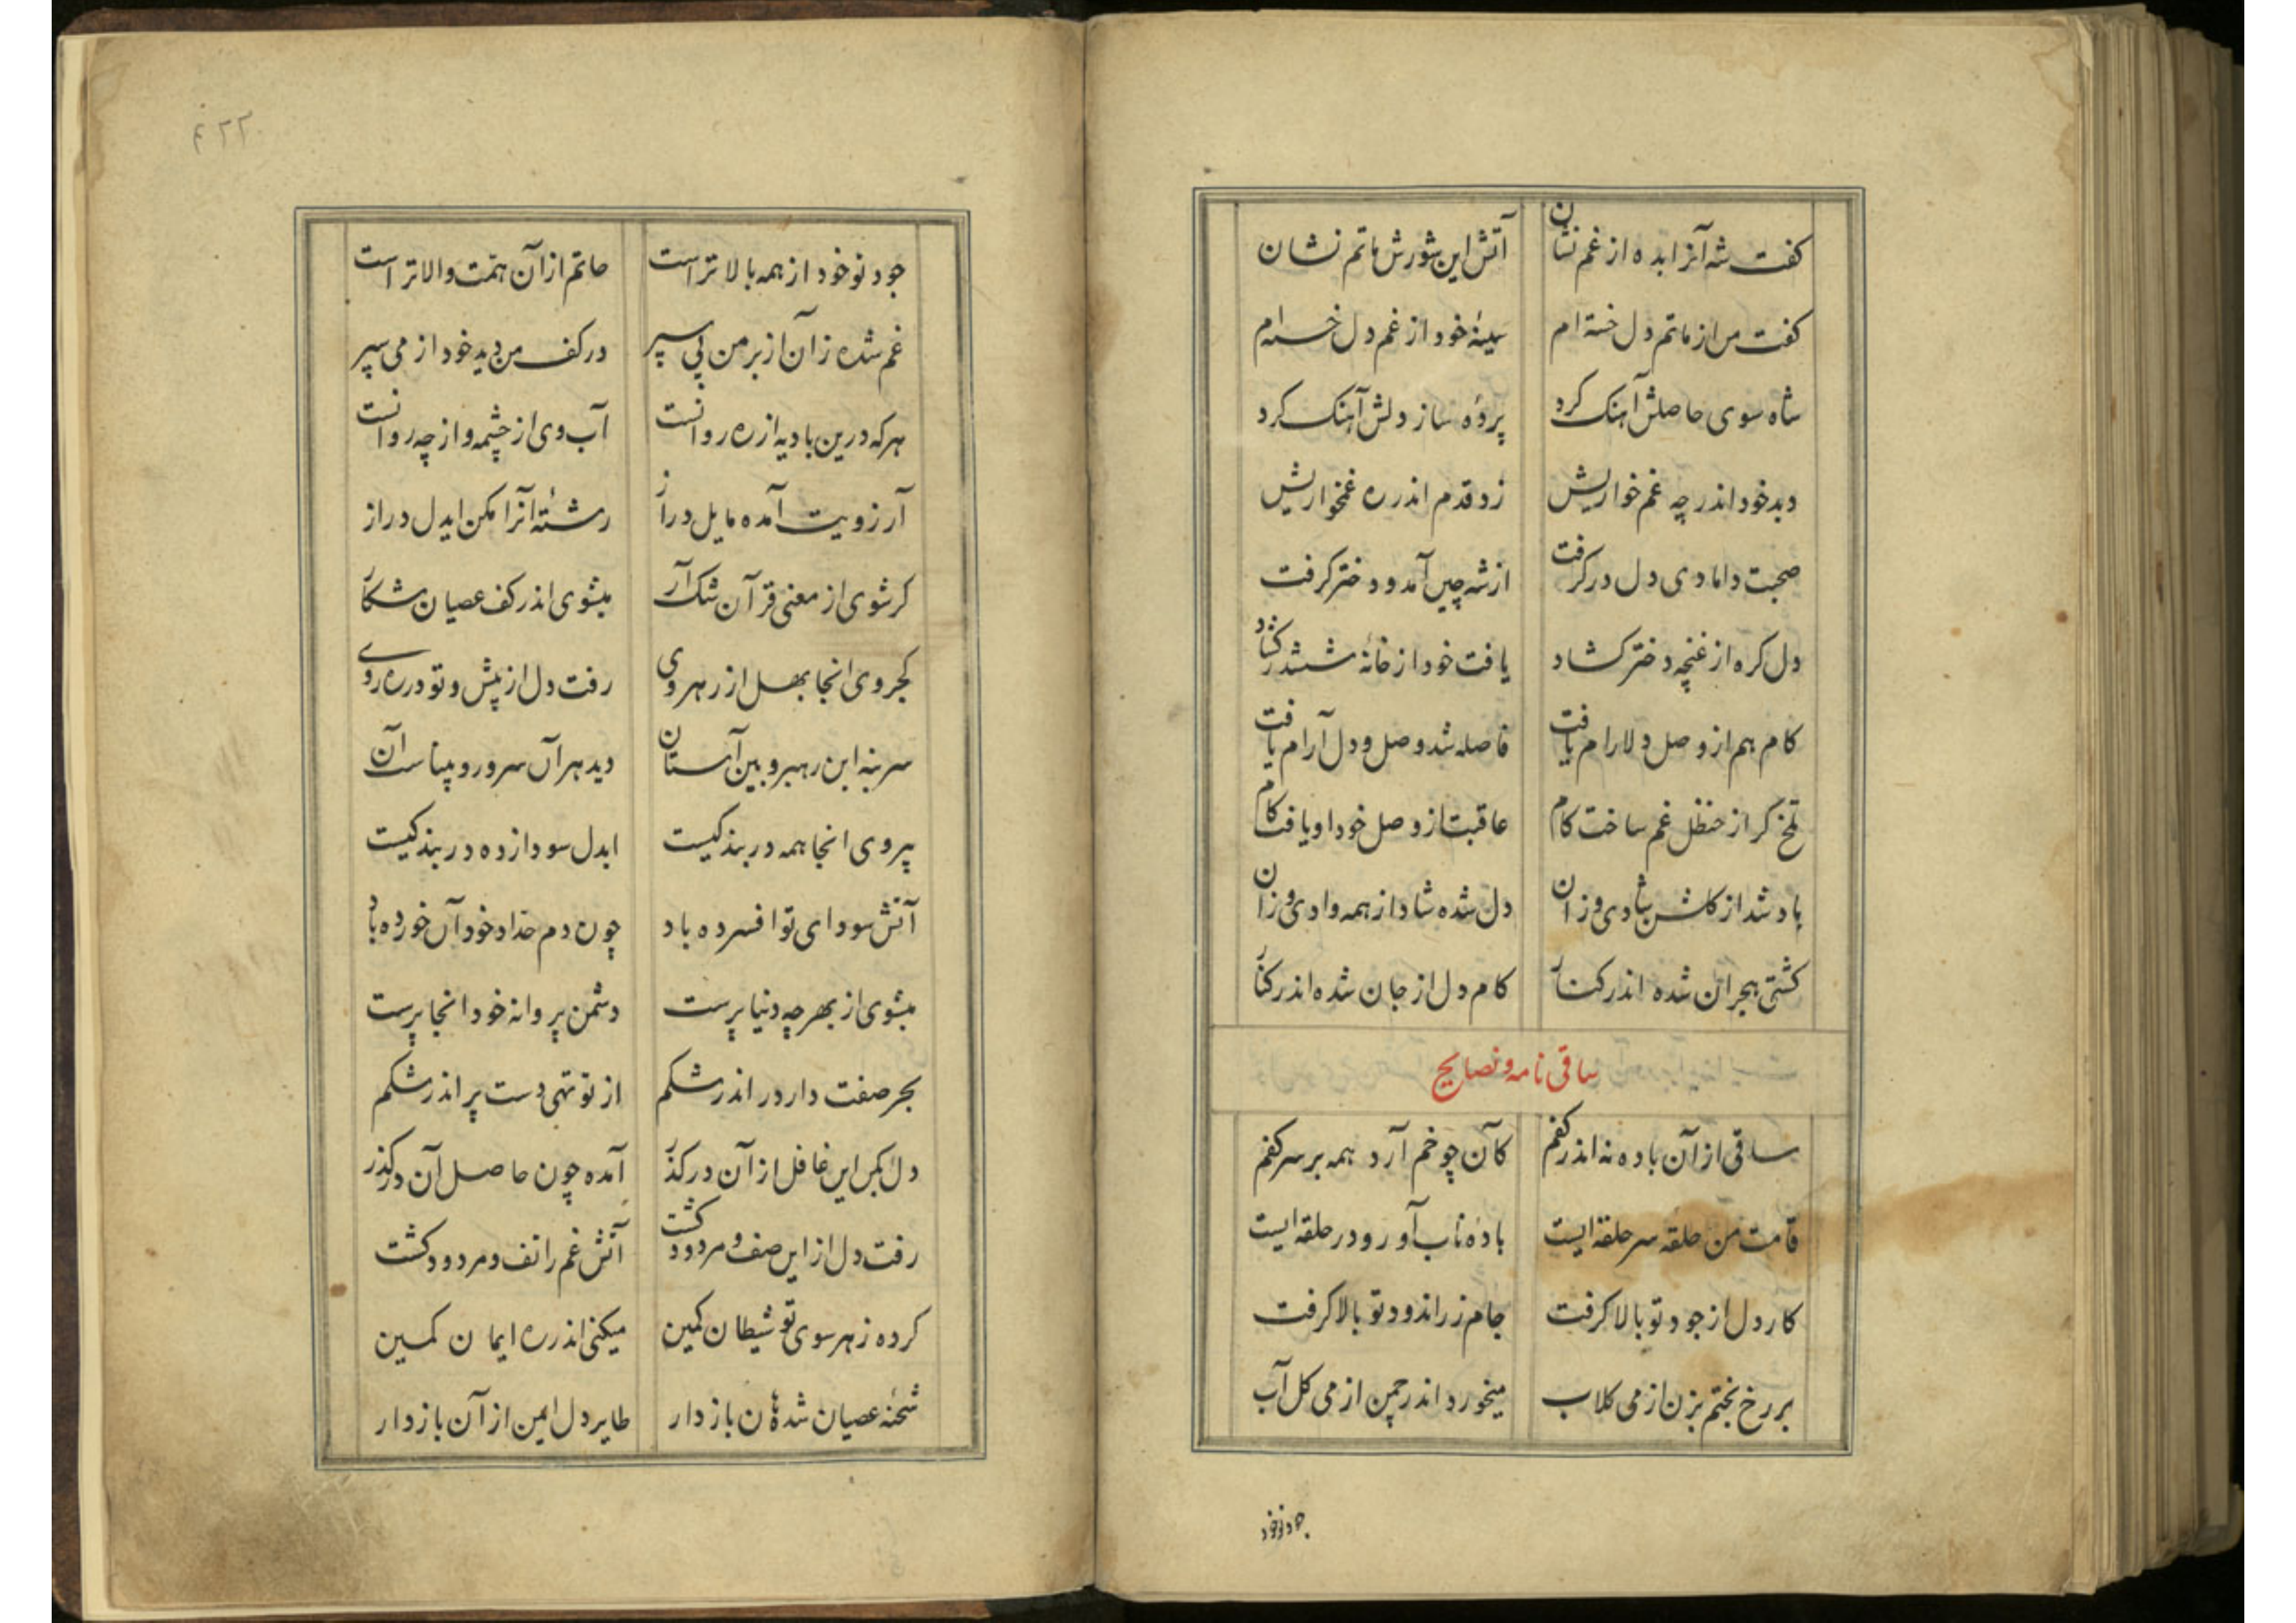 کفت شه آنرا بده از غم نشان آتش این شورش ماتم نشان
کفت من از ماتم دل خسته ام سینهٔ خود از غم دل خسته ام
شاه سوی حاصلش آهنک کرد پردهٔ ساز دلش آهنک کرد
دید خود اندر چه غم خواریش زد قدم اندر ره غمخواریش
صحبت دامادی دل در کرفت از شه چین آمد و دختر کرفت
دل کره از غنچه دختر کشاد یافت خود از خانهٔ ششدر کشاد
کام هم از وصل دلارام یافت فاصله شد وصل و دل آرام یافت
تلخ کر از حنظل غم ساخت کام عاقبت از وصل خود او یافت کام
باد شد از کلشن شادی وزان دل شده شاد از همه وادی وزان
کشتی هجران شده اندر کنار کام دل از جان شده اندر کنار
ساقی نامه و نصایح
ساقی از آن باده نه اندر کفم کآن چو خم آرد همه بر سر کفم
قامت من حلقه سر حلقه ایست بادهٔ ناب آور و در حلقه ایست
کار دل از جود تو بالا کرفت جام زراندود تو بالا کرفت
بر رخ بختم بزن از می کلاب میخورد اندر چمن از می کل آب
جود تو خود
۴۲۲
جود تو خود از همه بالاتر است حاتم از آن همت والاتر است
غم شده زان از بر من پی سپر در کف من دید خود از می سپر
هر که درین بادیه از ره روانست آب وی از چشمه و از چه روانست
آرزویت آمده مایل دراز رشتهٔ آنرا مکن ایدل دراز
کر شوی از معنی قرآن شک آر میشوی اندر کف عصیان شکار
کجروی انجا بهل از رهروی رفت دل از پیش و تو در ره روی
سر بنه این رهبر و بین آستان دید هر آن سرور و بیناست آن
پیروی انجا همه در بند کیست ایدل سودازده در بند کیست
آتش سودای تو افسرده باد چون دم حداد خود آن خورده باد
میشوی از بهر چه دنیا پرست دشمن پروانه خود انجا پرست
بحر صفت دار در اندر شکم از تو تهی دست پر اندر شکم
دل بکن این غافل از آن در کذر آمده چون حاصل آن در کذر
رفت دل از این صف و مردود کشت آتش غم را تف و مردود کشت
کرده ز هر سوی تو شیطان کمین میکنی اندر ره ایمان کمین
شحنهٔ عصیان شده هان باز دار طایر دل ایمن از آن باز دار